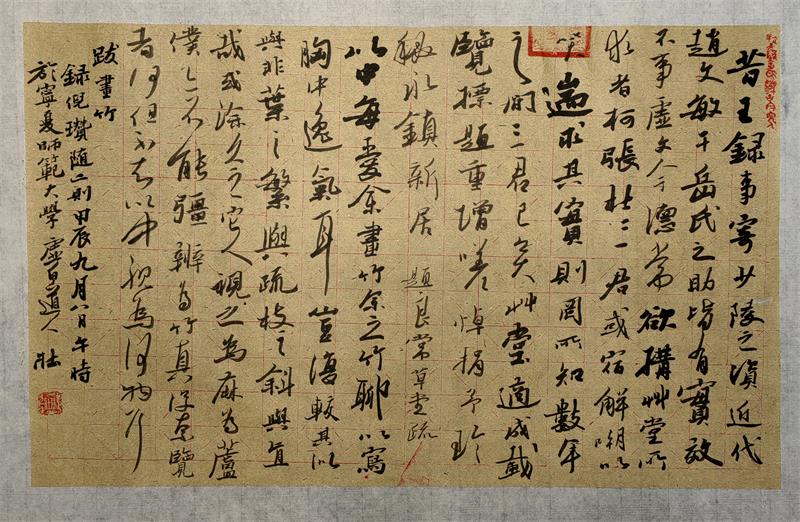 昔王録事寄少陵之資近代
趙文敏干岳氏之助皆有實效
不事虛文今德常欲搆艸堂所
求者柯張杜二三君或宿解嘲以
遄求其實則罔所知數年
之間三君已矣艸堂適成載
覽摽題重增嗟悼捐予珍
永鎮新居 題良常草堂疏
以中每愛余畫竹余之竹聊以寫
胸中逸氣耳豈復較其似
與非葉之繁與疏枝之斜與直
哉或涂久之它人視之為麻為蘆
僕亦不能彊辨為竹真沒奈覽
者何但不知以中視為何物耳
跋畫竹
録倪瓚随二則甲辰九月八日午時
於寧夏師範大學 虛